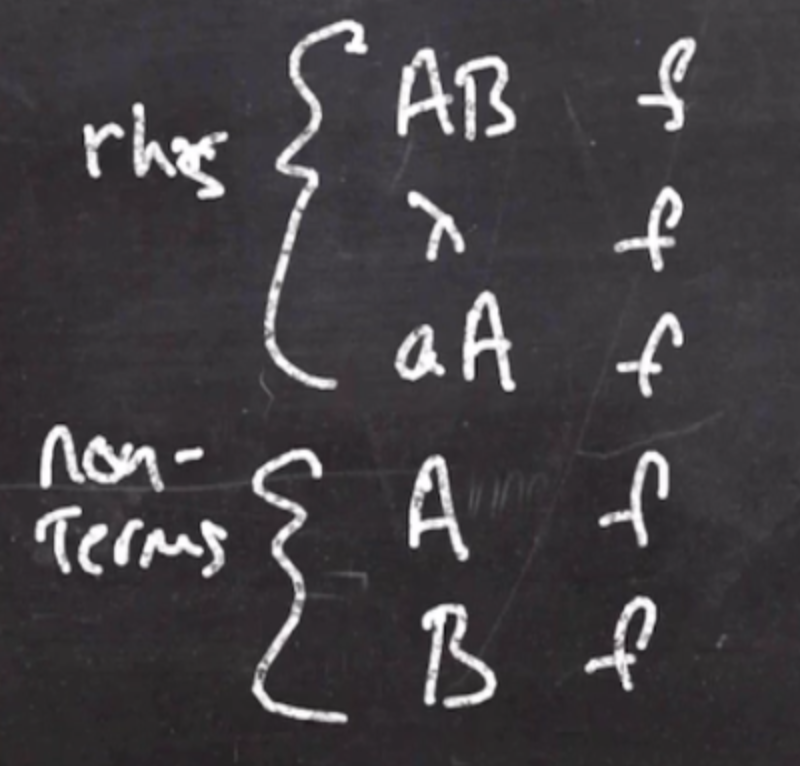 rhs { AB f
λ f
aA f
non-
Terms { A f
B f